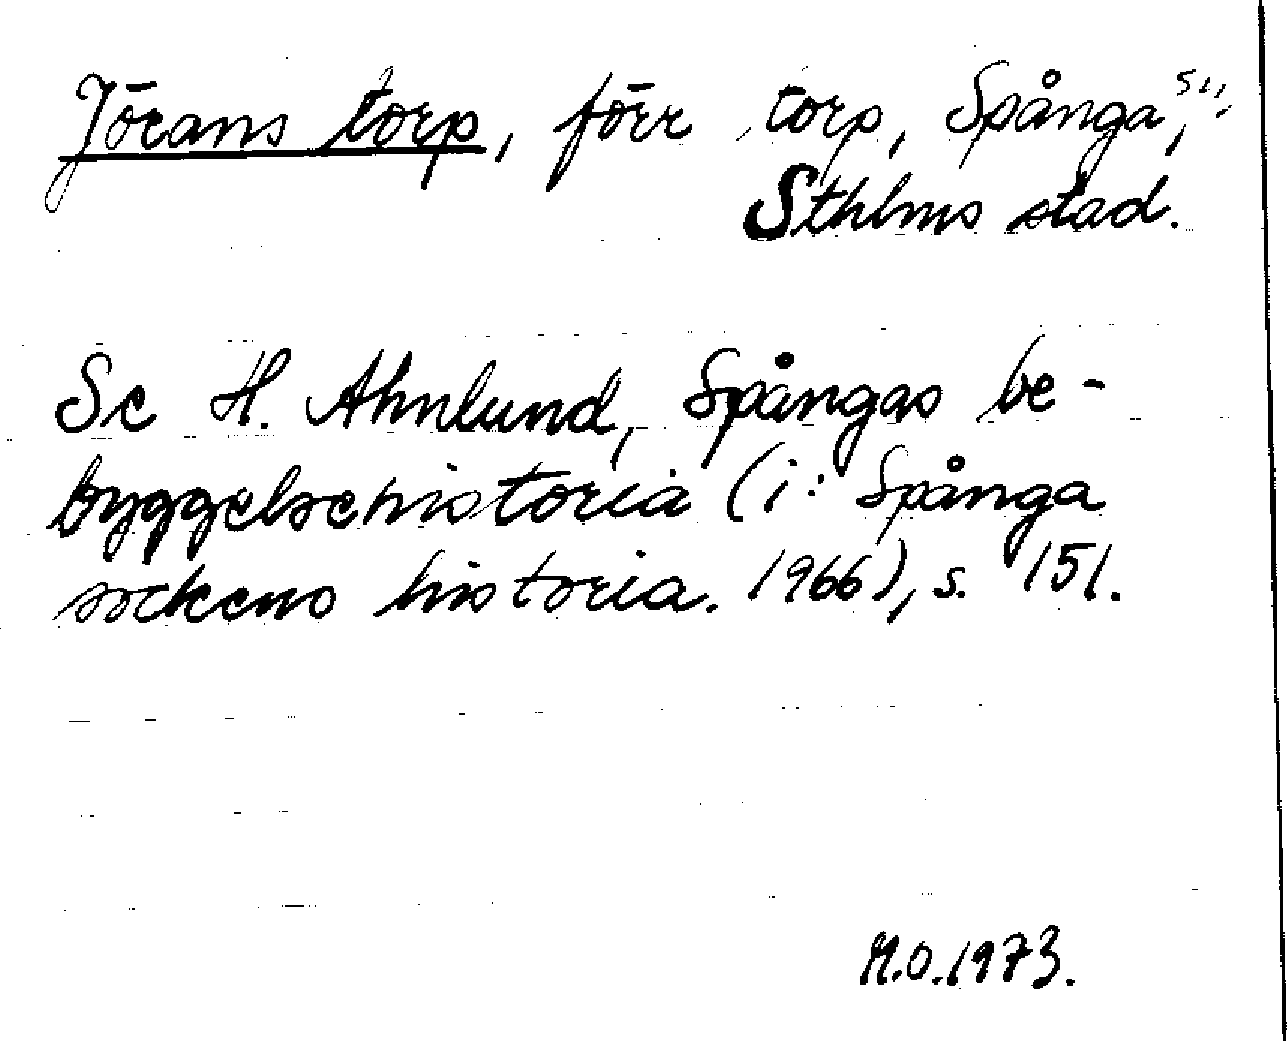 Jörans torp, förr torp, Spånga sn,
Sthlms stad.
Se H. Ahnlund, Spångas be-
byggelsehistoria (i: Spånga
sockens historia. 1966), s. 151.
M.O. 1973.